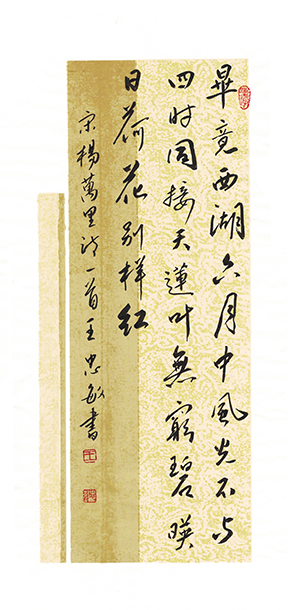 畢竟西湖六月中風光不与
四时同接天蓮叶無窮碧暎
日荷花别样红
宋楊萬里诗一首王忠敏書